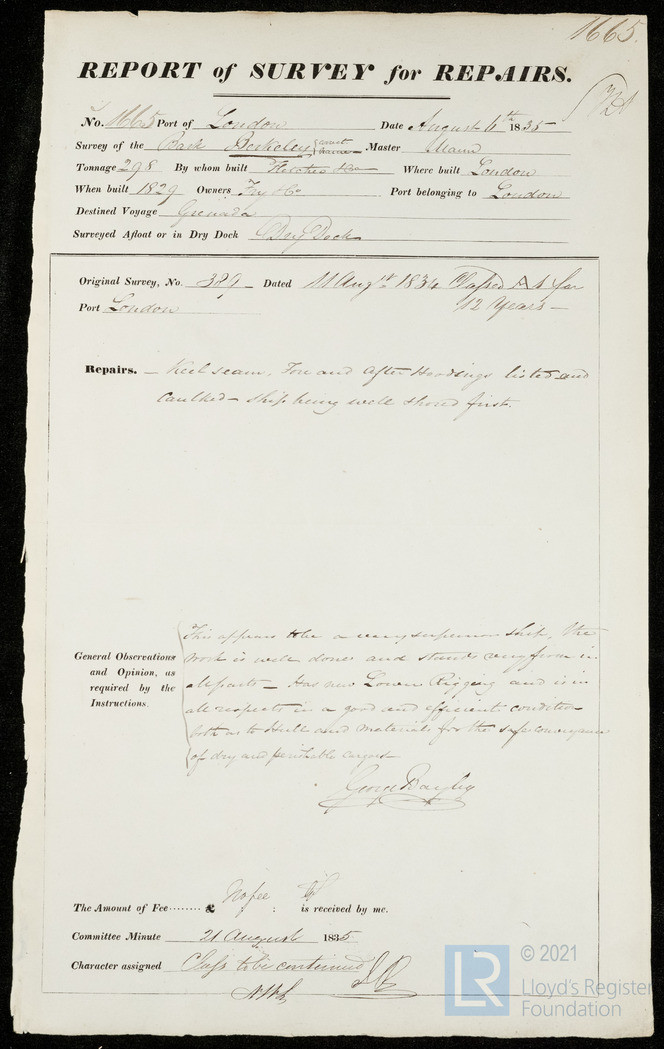 1665.
REPORT of SURVEY for REPAIRS.
No. 1665 Port of London Date August 6th 1835
Survey of the Bark Berkeley Master Mann
Tonnage 298 By whom built Fletcher & Co Where built London
When built 1829 Owners Fry & Co Port belonging to London
Destined Voyage Grenada
Surveyed Afloat or in Dry Dock Dry Dock
Original Survey, No. 389 Dated 11 Augst 1834 Classed A 1 for
Port London 12 Years
Repairs. Keel seam, Fore and After Hoodings listed and
Caulked ship being well shored first.
This appears to be a very superior ship, the
General Observations and Opinion, as required by the Instructions.
work is well done and stands very firm in
all parts Has new Lower Rigging and is in
all respects in a good and efficient condition
both as to Hull and Materials for the safe conveyance
of dry and perishable cargoes
George Bayley
The Amount of Fee ........ £ No fee : is received by me.
Committee Minute 21 August 1835
Character assigned Class to be continued
© 2021
LR Lloyd's Register
Foundation